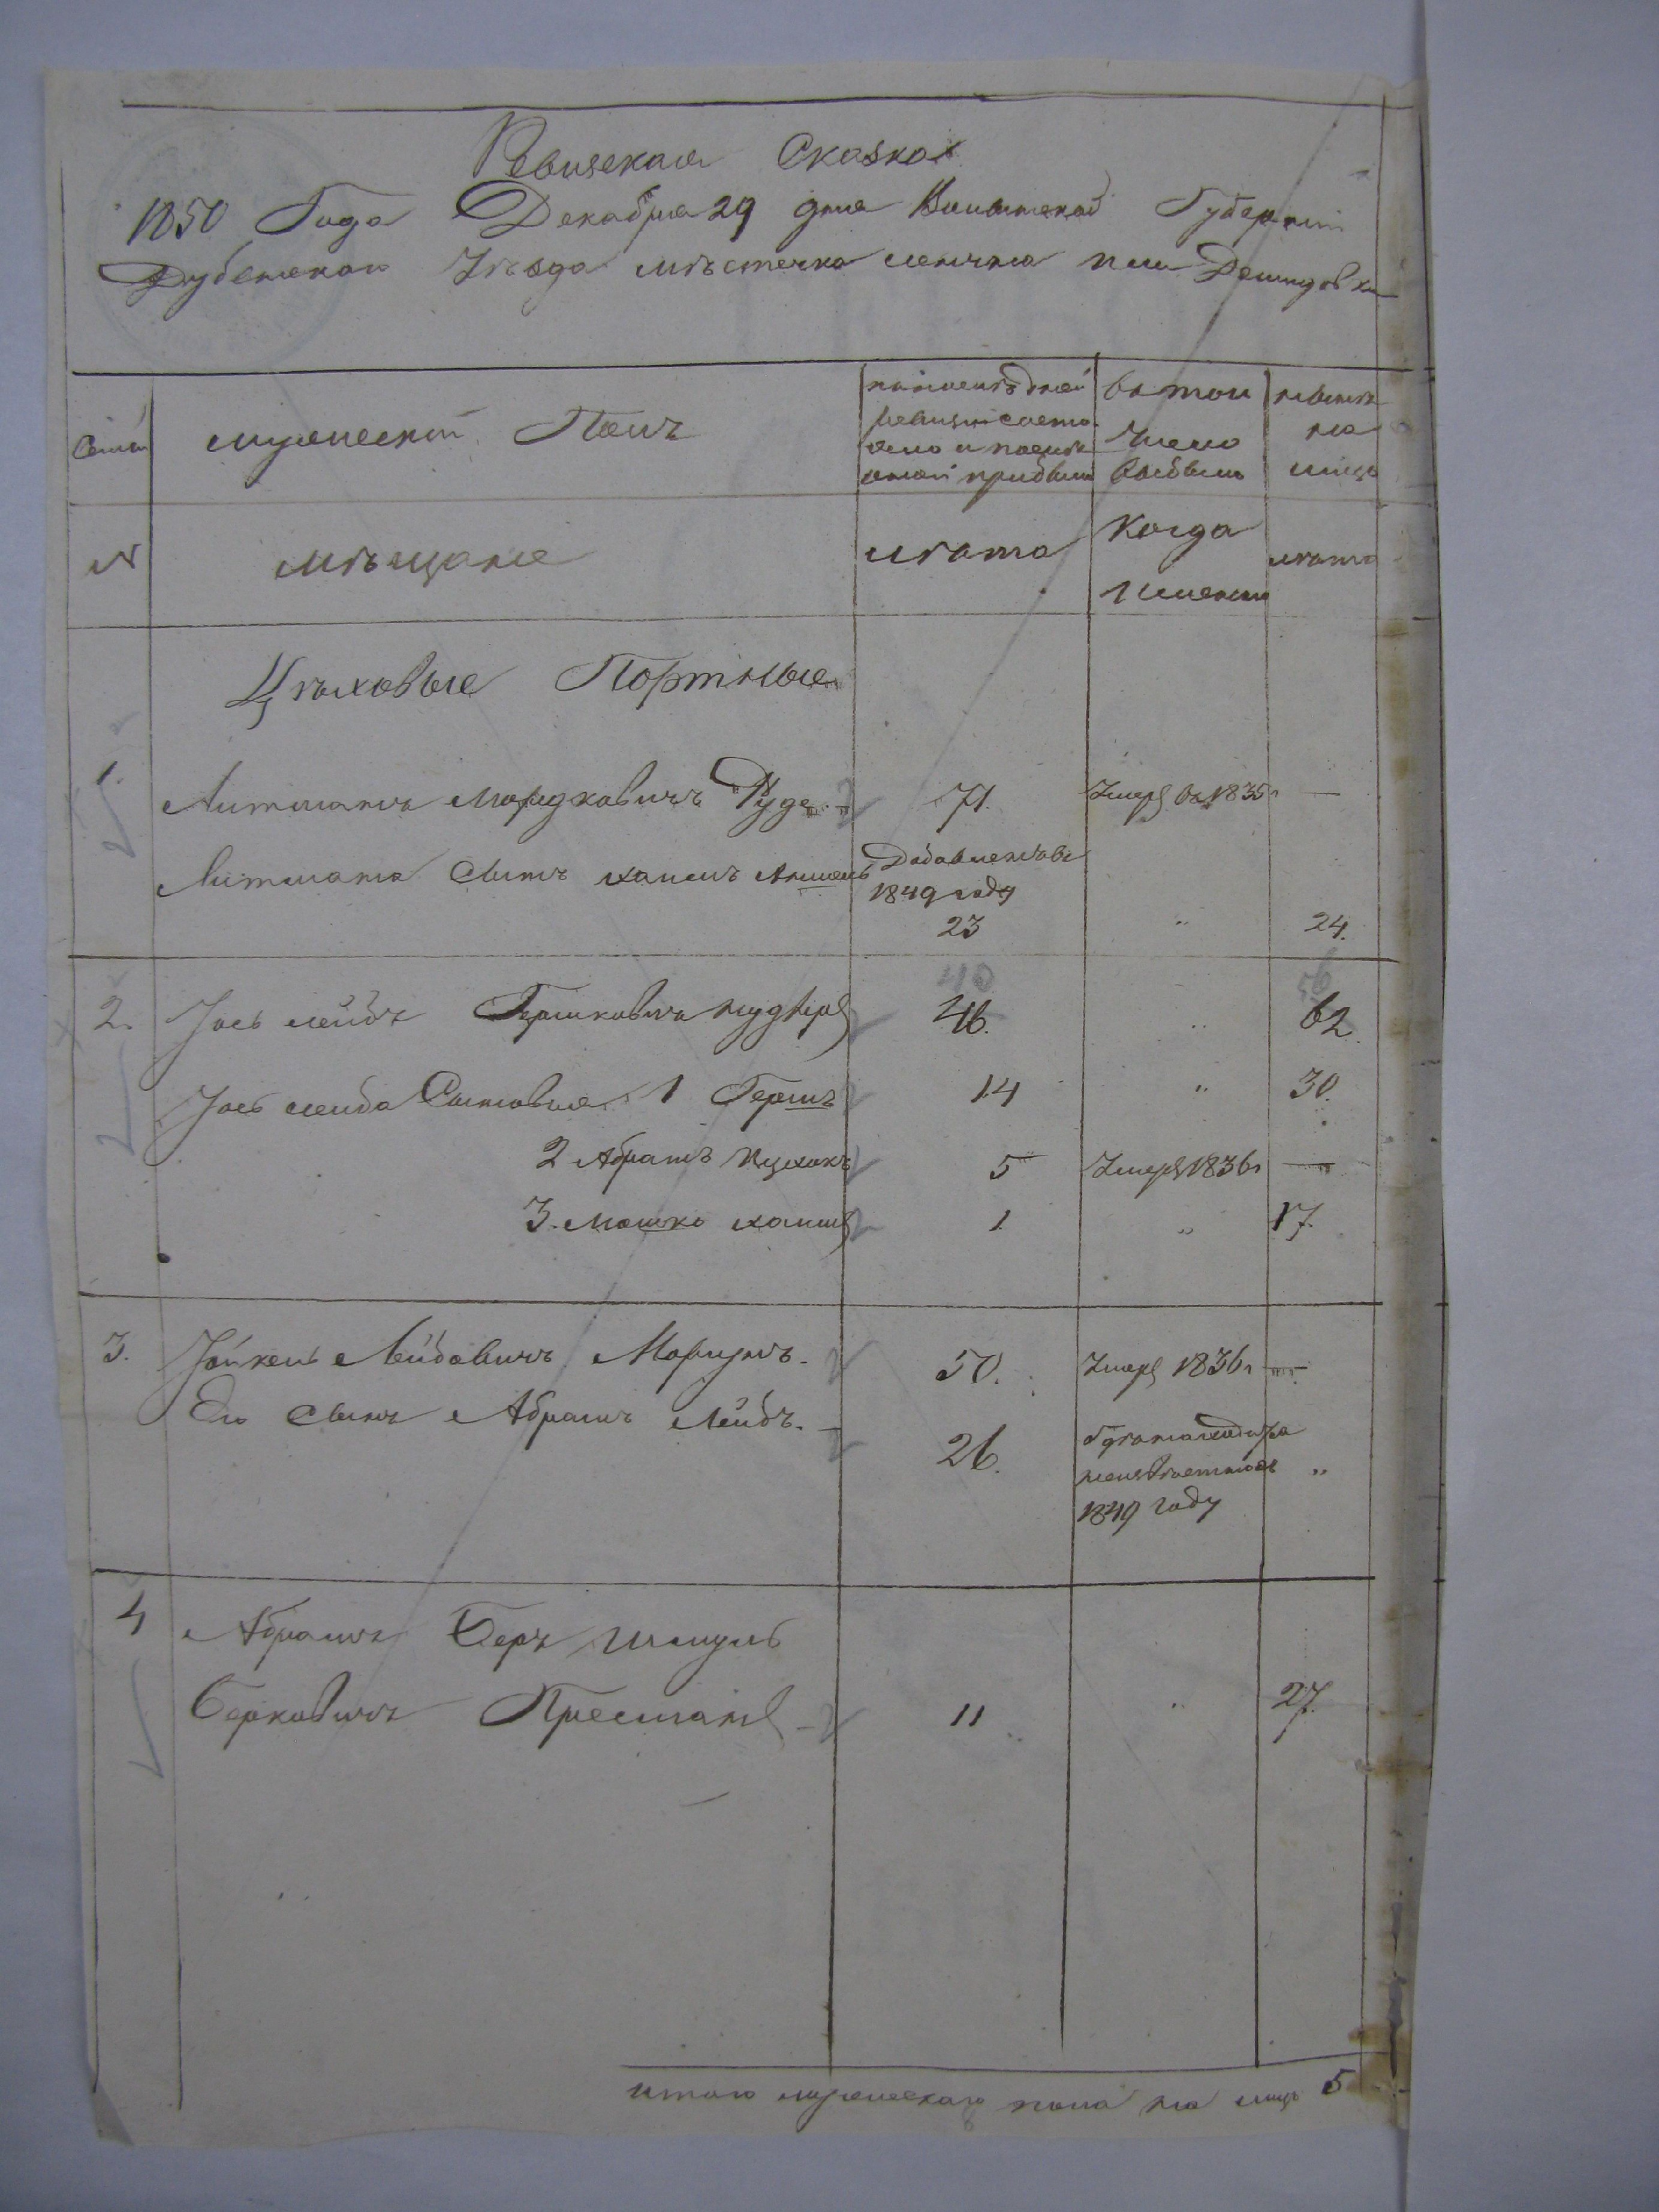 Ревизская Сказка
1850 Года Декабря 29 дня Волынской Губернии
Дубенскаго Уѣзда мѣстечка Демидовки
Семьи
мужескій Полъ
по послѣдней ревизіи состояло и послѣ оной прибыло
въ томъ числѣ выбыло
нынѣ на лицо
№
мѣщане
лѣта
Когда именно
лѣта
Цѣховые Портные
1. Литманъ Мордковичъ 71. Умеръ въ 1835 г —
Литмана Сынъ Добавленъ въ
1849 году
23 " 24.
40 56
2. Іось Лейбъ Гершковичъ 46. " 62.
Іось Лейба Сыновья 1 Гершъ 14 " 30.
2 Абрамъ Ицхокъ 5 Умеръ 1836 г —
3. Мошко 1 " 17.
3. Янкель Лейбовичъ 50. Умеръ 1836 г —
Его Сынъ Абрамъ Лейбъ. 26.
"
1849 году
4 Абрамъ Беръ Шмуль
Берковичъ 11 " 27.
итого мужескаго пола на лицо 5